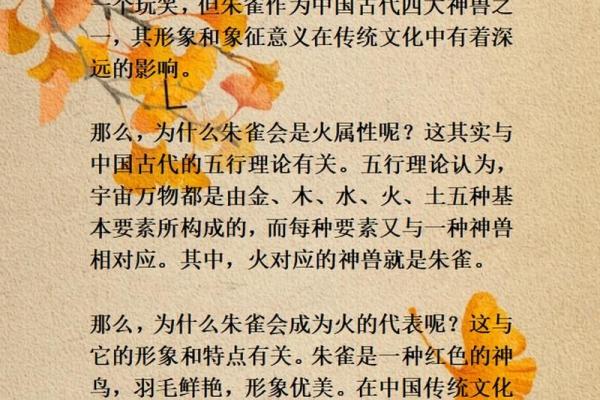 一个玩笑，但朱雀作为中国古代四大神兽之
一，其形象和象征意义在传统文化中有着深
远的影响。
那么，为什么朱雀会是火属性呢？这其实与
中国古代的五行理论有关。五行理论认为，
宇宙万物都是由金、木、水、火、土五种基
本要素所构成的，而每种要素又与一种神兽
相对应。其中，火对应的神兽就是朱雀。
那么，为什么朱雀会成为火的代表呢？这与
它的形象和特点有关。朱雀是一种红色的神
鸟，羽毛鲜艳，形象优美。在中国传统文化